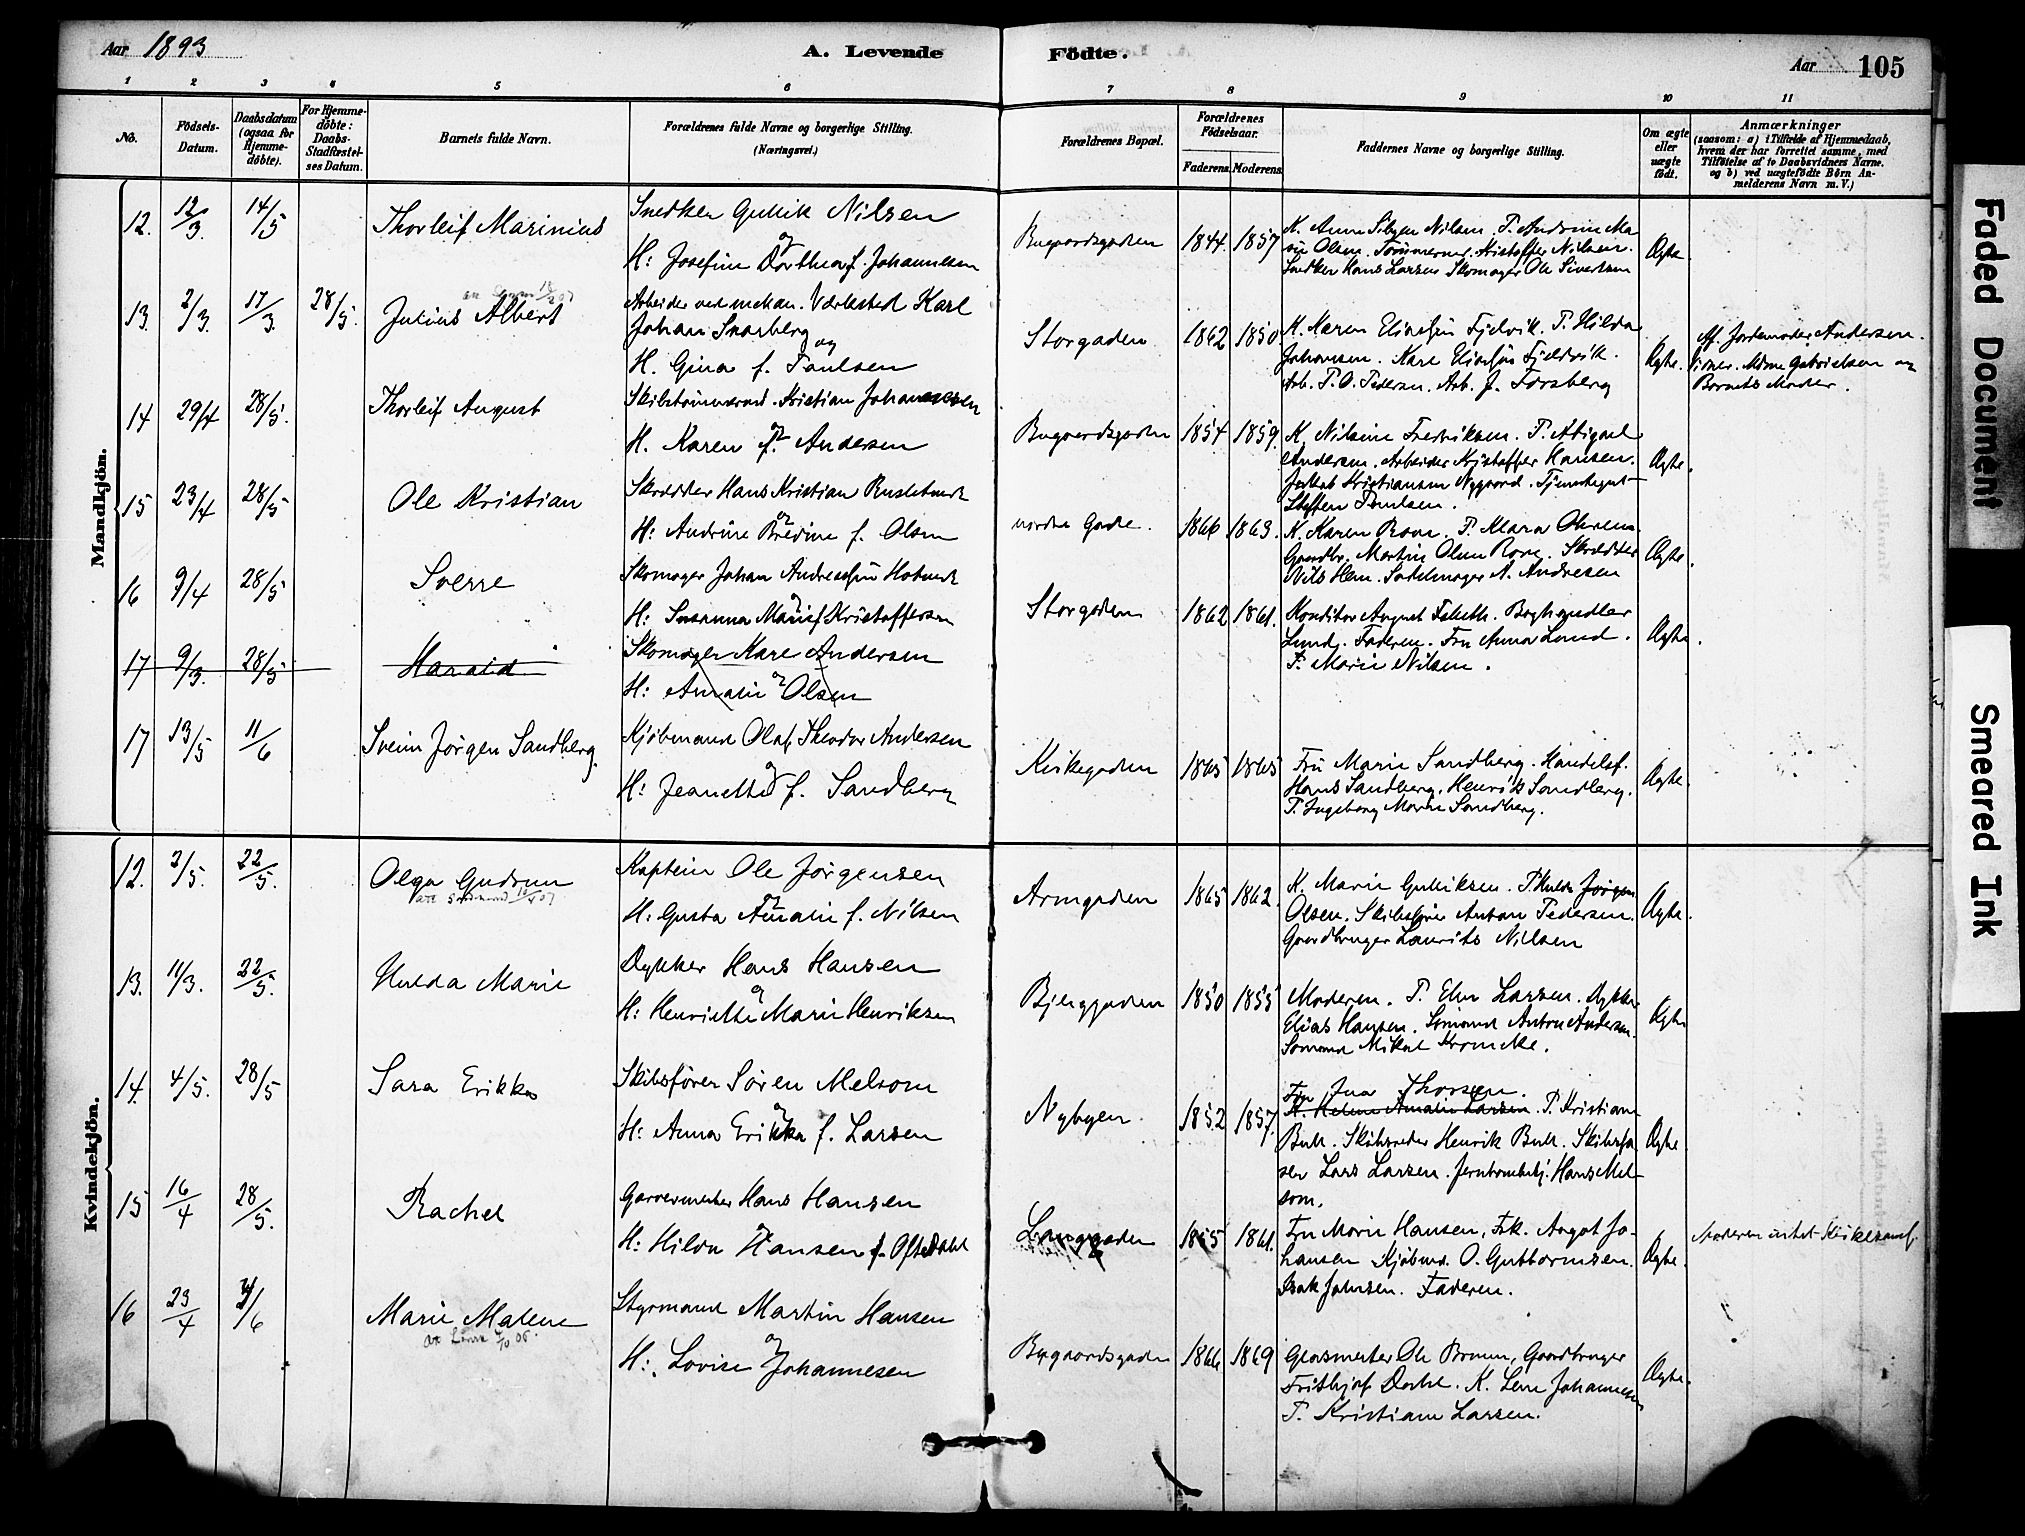 Aar 1893
A. Levende
Födte.
Aar
105
1 2 3 4 5 6 7 8 9 10 11
No.
Födsels-
Datum.
Daabsdatum
(ogsaa for
Hjemme-
döbte).
For Hjemme-
döbte:
Daabs-
Stadfæstel-
ses Datum.
Barnets fulde Navn.
Forældrenes fulde Navne og borgerlige Stilling.
(Næringsvei.)
Forældrenes Bopæl.
Forældrenes
Födselsaar.
Faderens.
Moderens.
Faddernes Navne og borgerlige Stilling.
Om ægte
eller
uægte
födt.
Anmærkninger
(saasom: a) i Tilfælde af Hjemmedaab,
hvem der har forrettet samme, med
Tilföielse af to Daabsvidners Navne,
og b) ved uægtefödte Börn An-
melderens Navn m. V.)
Mandkjön.
12. 12/3. 14/5 Thorleif Marinius
Snedker Gullik Nilsen
og
H: Josefine Dorthea f. Johannesen
Bugaardsgaden 1844. 1857
K. Anna Nilsen. P. Andrine Ma-
rie Olsen. Tømmermd. Kristoffer Nilsen.
Snedker Hans Larsen Skomager Ole Sivertsen
Ægte.
13. 2/3. 17/3. 28/5. Julius Albert
Arbeider ved mekan. Værksted Karl
Johan Snarberg
og
H. Gina f. Paulsen
Storgaden 1862 1850
K. Maren Eliassen Fjelvik. P. Hilda
Johansen. Karl Eliassen Fjeldvik.
Arb. P. O. Pedersen. Arb. J. Forsberg
Ægte.
Af Jordemoder Andersen.
Vidner. Gabrielsen og
Barnets Moder.
14 29/4 28/5. Thorleif August
Skibstømmermd. Kristian Johannessen
og
H. Karen f. Andersen
Bugaardsgaden 1854 1859.
K. Nilsine Fredriksen. P. Abigael
Andersen. Arbeider Kristoffer Hansen.
Jakob Kristiansen Nygaard. Tjenestegut
Steffen Poulsen.
Ægte.
15 23/4 28/5 Ole Kristian
Skrædder Hans Kristian
og
H: Andrine Bredine f. Olsen
nordre Gade. 1866 1863.
K. Karen Rove. P. Klara
Gaardbr. Martin Olsen Rove. Skrædder
Nils Hem. Sadelmager A. Andresen
Ægte.
16 9/4 28/5 Sverre
Skomager Johan Andreassen
og
H: Susanna Marie f. Kristoffersen
Storgaden 1862 1861.
Konditor August. Boghandler
Lund. Faderen. Fru Anna Lund.
P. Marie Nilsen.
Ægte.
17 9/3. 28/5 Harald
Skomager Karl Andersen
og
H: Amalie Olsen
17 13/5 11/6 Svein Jørgen Sandberg.
Kjøbmand Olaf Theodor Andersen
og
H: Jeanette f. Sandberg
Kirkegaden 1865 1865
Fru Marie Sandberg. Handelsf.
Hans Sandberg. Henrik Sandberg.
P. Ingeborg Marie Sandberg.
Ægte.
Kvindekjön.
12. 2/5. 22/5. Olga Gudrun
Kaptein Ole Jørgensen
og
H: Gusta Amalie f. Nilsen
Armgaden 1865 1862.
K. Marie Gulliksen. P. Hulda Jørgen
Olsen. Skibsfører Anton Pedersen.
Gaardbruger Laurits Nilsen
Ægte.
13. 11/3. 22/5. Hulda Marie
Dykker Hans Hansen
og
H: Henriette Marie Henriksen
Bjerggaden 1850 1855
Moderen. P. Elen Larsen. Dykker
Elias Hansen. Sømand Anton Andersen.
Sømand Mikal Kroncke.
Ægte
14. 4/5. 28/5 Sara Erikka
Skibsfører Søren Melsom
og
H: Anna Erikka f. Larsen
Nybyen. 1852 1857.
Fru Ina Thorsen.
K. Helene Amalie Larsen. P. Kristiane
Bull. Skibsreder Henrik Bull. Skibsfø-
rer Lars Larsen. Hans Mel-
som.
Ægte
15 16/4 28/5. Rachel
Garvermester Hans Hansen
og
H: Hilda Hansen f. Oftedahl
Langgaden 1855 1861.
Fru Marie Hansen, Frk. Aagot Jo-
hansen Kjøbmd. O. Guttormsen.
Isak Johnsen. Faderen.
Ægte.
Moderen
16 23/4 4/6 Marie Malene
Styrmand Martin Hansen
og
H: Lovise Johannesen
Bugaardsgaden 1866 1869
Glasmester Ole Bruun, Gaardbruger
Frithjof Dahl. K. Lene Johannesen
P. Kristiane Larsen.
Ægte.
Faded Document
Smeared Ink